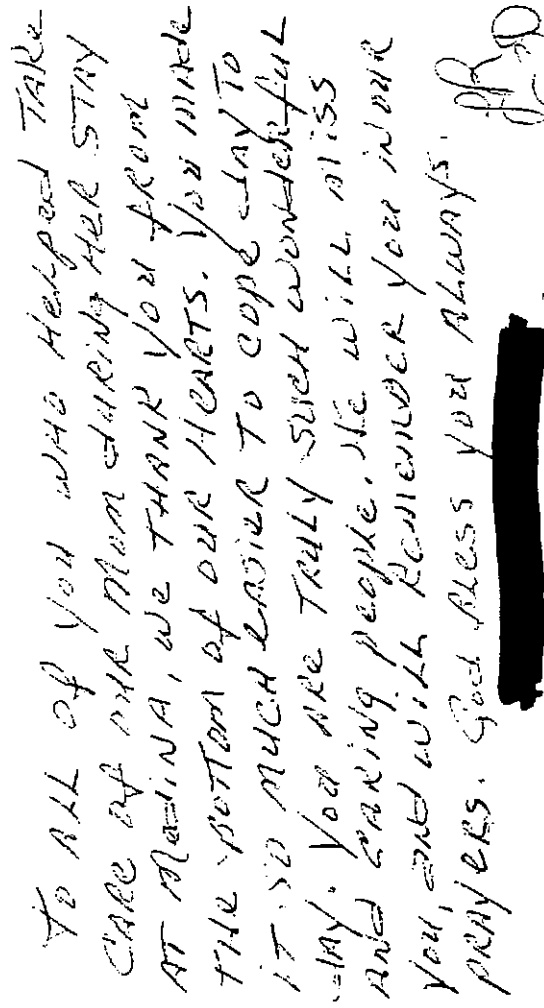 To ALL of you who Helped TAKe
CARe of our Mom during Her STAY
AT MedinA, we THANK You from
THe BOTTom of our HeARTS. You mAde
iT so mucH eAsier To cope dAy To
dAy. You ARe TRuLy sucH wonderfuL
And cARing people. We wiLL miss
you, And wiLL RememBeR you in ouR
pRAyeRs. God BLess you ALwAys.